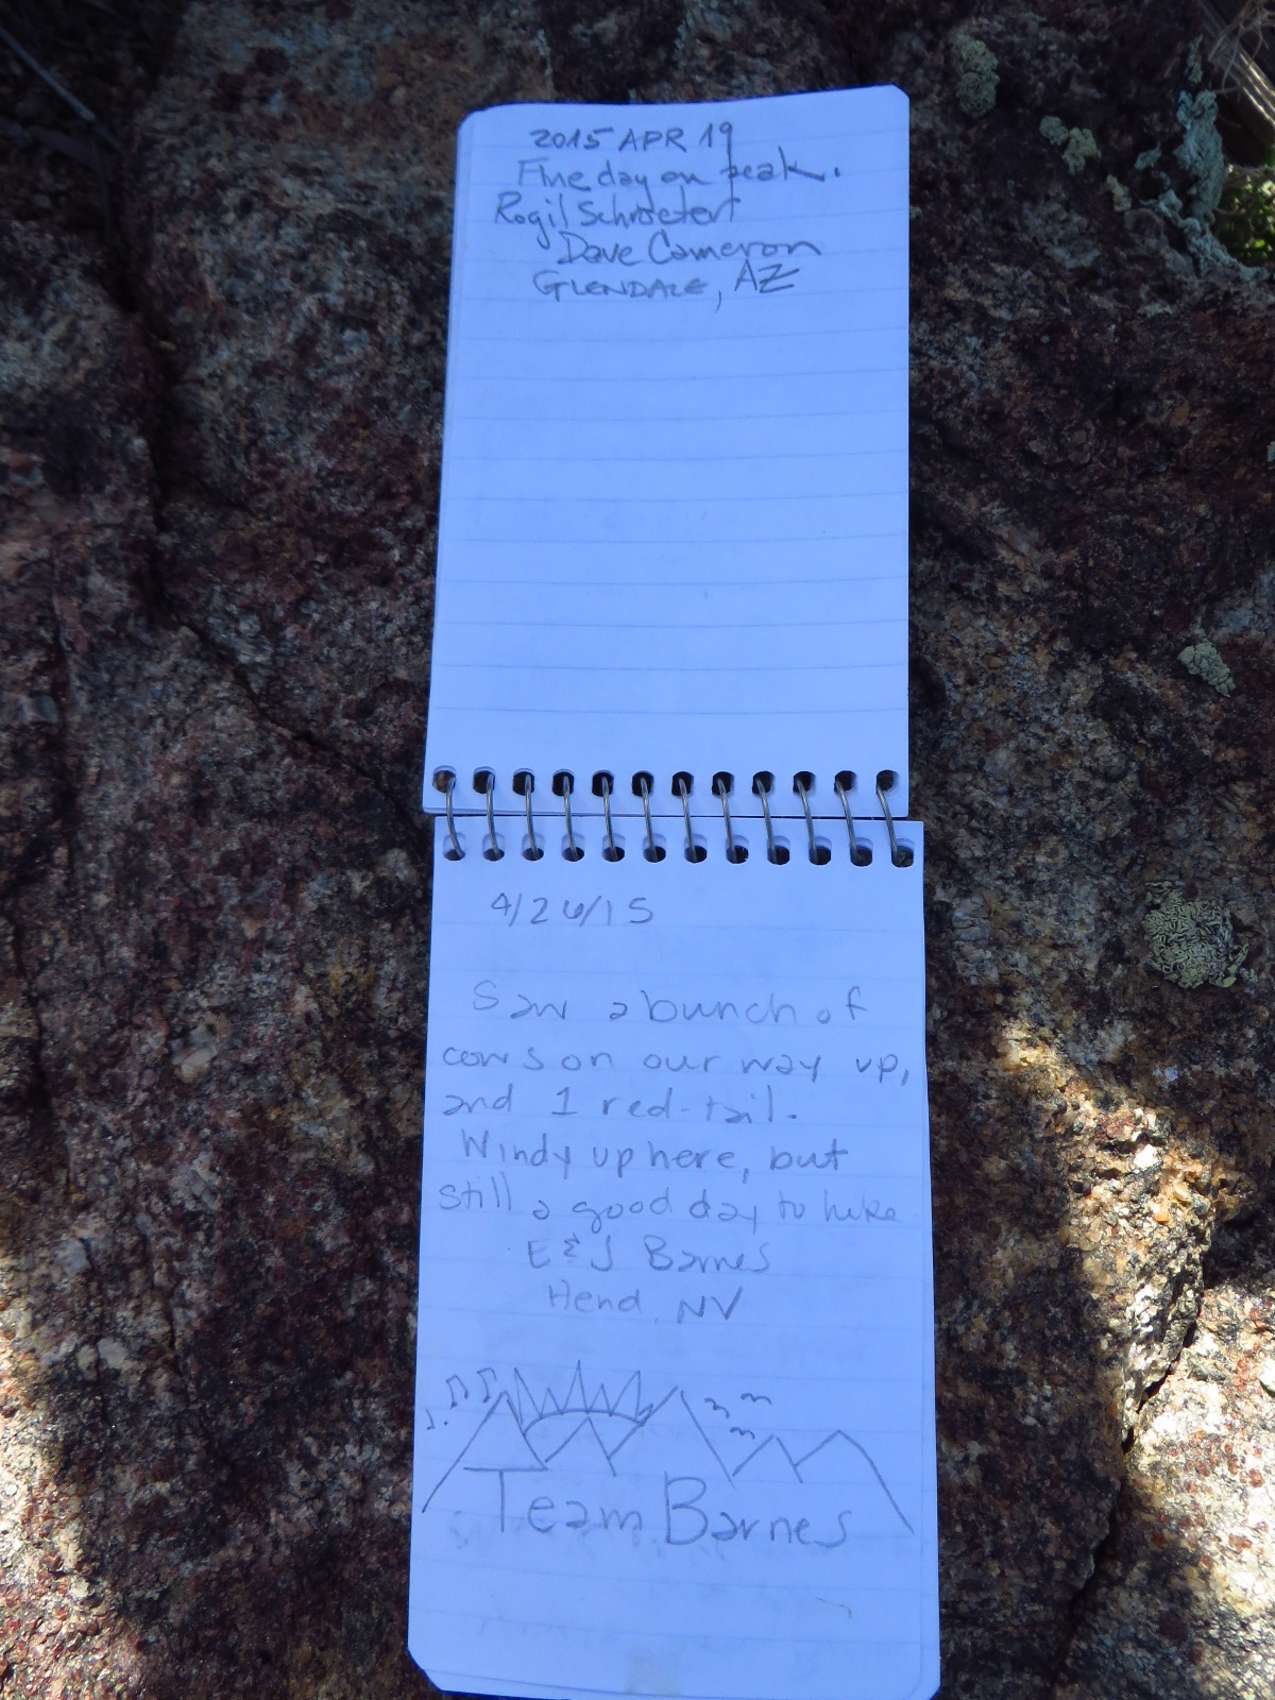 2015 APR 19
Fine day on peak.
Rogil Schroeter
Dave Cameron
GLENDALE, AZ
4/26/15
Saw a bunch of
cows on our way up,
and 1 red-tail.
Windy up here, but
still a good day to hike
E & J Barnes
Hend. NV
Team Barnes